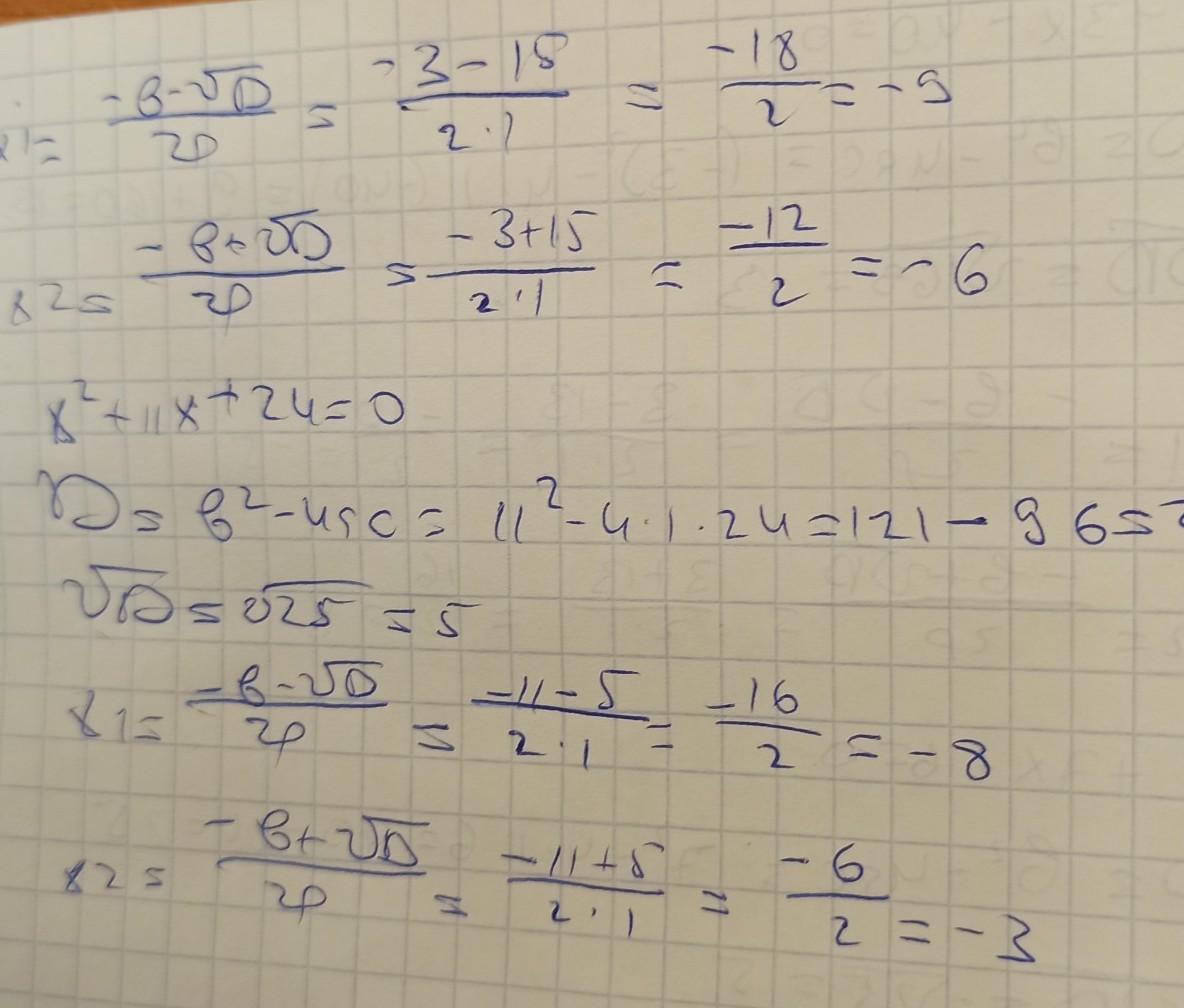 x1 = (-b-√D)/2a = (-3-15)/(2·1) = -18/2 = -9
x2 = (-b+√D)/2a = (-3+15)/(2·1) = -12/2 = -6
x²+11x+24=0
D = b²-4ac = 11²-4·1·24=121-96=
√D = √25 = 5
x1 = (-b-√D)/2a = (-11-5)/(2·1) = -16/2 = -8
x2 = (-b+√D)/2a = (-11+5)/(2·1) = -6/2 = -3